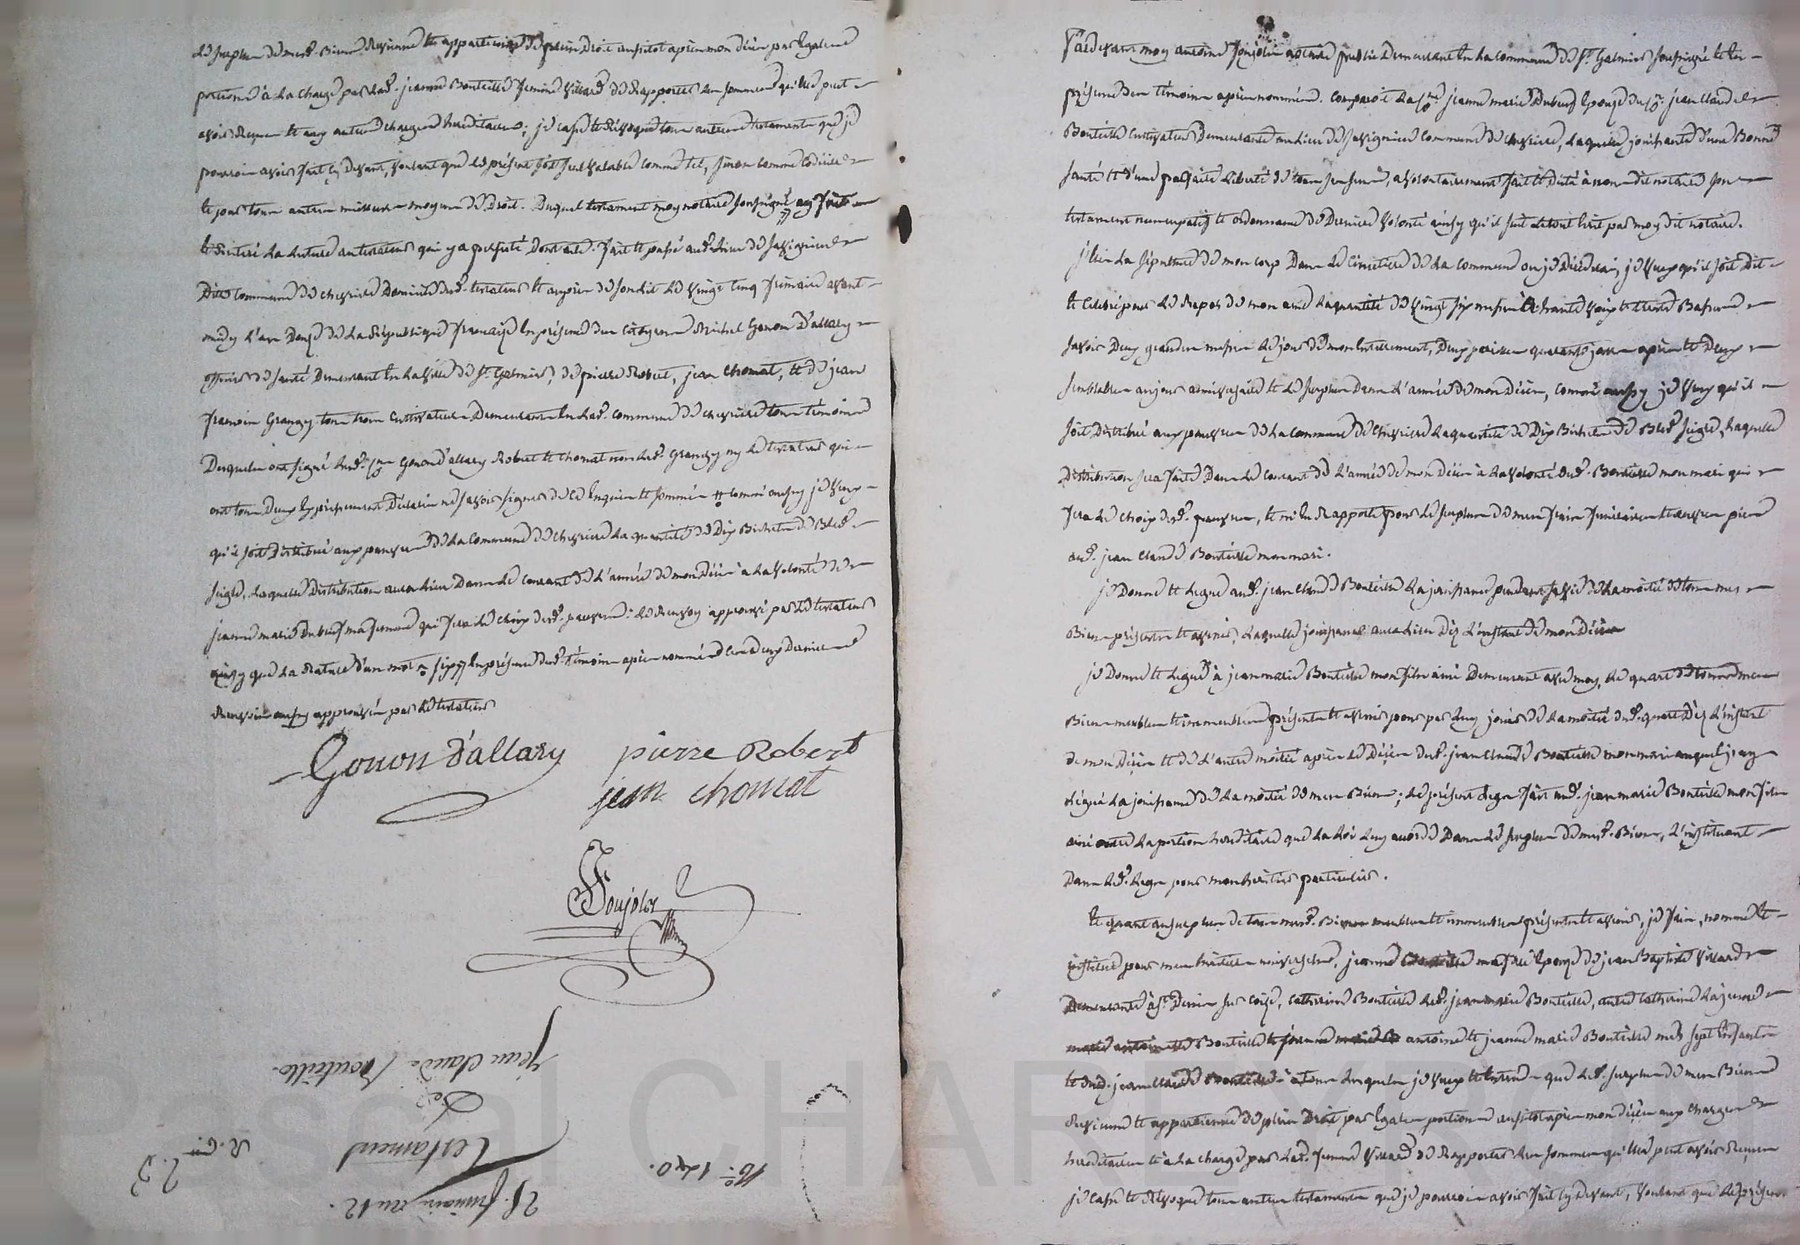 le surplus de mesd. Biens revienne et appartienne de plein Droit aussitot apres mon décès par Egalle
portions à la charge par lad. jeanne Bouteille femme Villard de Rapporter les sommes qu'elle peut
avoir Reçues et aux autres charges hereditaires; je casse et Révoque tous autres testaments que je
pourrois avoir fait cy devant, voulant que le présent soit seul valable comme tel, sinon comme Codicille
et par tous autres meilleurs moyens de Droit. Duquel testament moy notaire soussigné ay fait
et Réitéré la lecture au testateur qui y a persisté Dont acte. fait et passé aud. lieu de Jassignieu
Dite Commune de chevrieres Domicile dud. testateur le vingt cinq frimaire avant
midy l'an Douze de la République française En présence des Citoyens Michel Gonon D'allary
officier de santé Demeurant En la ville de St. Galmier, de pierre Robert, jean Chomat, et de jean
francois Grangy tous trois Cultivateurs Demeurants En lad. commune de chevrieres tous témoins
Desquels ont signé lesd. Gonon d'allary Robert et Chomat non led. Grangy ny le testateur qui
ont tous Deux Expressement Déclaré ne savoir signer de ce Enquis et sommés # comme aussy je veux
qu'il soit Distribué aux pauvres de la Commune de chevrieres la quantité de Dix Bichets de Bled
seigle, laquelle Distribution aura lieu Dans le courant de l'année de mon Décès à la volonté de
jeanne marie Dubeuf ma femme qui fera le choix desd. pauvres. le Renvoy approuvé par le testateur
ainsy que la Rature d'un mot En présence desd. témoins après nommés les Deux Derniers
aussy approuvés par le testateur
Gonon d'allary pierre Robert
jean chomat
Poujolat
No. 1240.
25. frimaire an 12.
Testament
De
Jean Claude Bouteille.
R. C.
Pardevant moy antoine Poujolat notaire public Demeurant En la Commune de St. Galmier soussigné et En
présence des témoins après nommés. Comparoit la Cne. jeanne marie Dubeuf Epouse du Cn. jean Claude
Bouteille Cultivateur Demeurante au lieu de Jassignieu Commune de chevrieres, laquelle jouissante d'une Bonne
santé et d'une parfaite Liberté de tous ses sens, a volontairement fait et dicté à mon dit notaire son
testament nuncupatif et ordonnance de Derniere volonté ainsy qu'il suit le tout Ecrit par moy dit notaire.
j'Elis la sépulture de mon corps Dans le Cimetiere de la Commune ou je Décéderai, je veux qu'il soit Dit
et Célébré pour le Repos de mon ame la quantité de vingt six messes à haute voix et trente Basses
savoir Deux grandes messes le jour de mon Enterrement, Deux pareilles quarante jours après et Deux
semblables au jour anniversaire et le surplus Dans l'année de mon Décès, comme aussy je veux qu'il
soit Distribué aux pauvres de la Commune de Chevrieres la quantité de Dix Bichets de Bled seigle, laquelle
Distribution sera faite Dans le courant de l'année de mon Décès à la volonté dud. Bouteille mon mari qui
fera le choix desd. pauvres, et m'En Rapporte pour le surplus de mes frais funéraires et œuvres pies
aud. jean Claude Bouteille mon mari.
je Donne et Legue aud. jean Claude Bouteille la jouissance pendant sa vie de la moitié de tous mes
Biens présents et avenir, laquelle jouissance aura Lieu Dès l'instant de mon Décès
je Donne et Legue à jean marie Bouteille mon fils ainé Demeurant avec moy, le quart de tous mes
Biens meubles et immeubles présents et avenir pour par Luy jouir de la moitié dud. quart Dès l'instant
de mon Décès et de l'autre moitié après le Décès dud. jean Claude Bouteille mon mari auquel j'ay
Légué la jouissance de la moitié de mes Biens; le présent Legs fait aud. jean marie Bouteille mon fils
ainé outre la portion héréditaire que la Loi Luy accorde Dans le surplus de mesd. Biens, L'instituant
Dans led. Legs pour mon heritier particulier.
Et quant au surplus de tous mesd. Biens meubles et immeubles présents et avenir, je fais, nomme Et
institue pour mes héritiers universels, jeanne Bouteille ma fille Epouse de jean Baptiste Villard
Demeurante à St. Denis sur Coise, Catherine Bouteille led. jean marie Bouteille, autre Catherine la jeune
Bouteille antoine et jeanne marie Bouteille mes sept Enfants
et dud. jean Claude Bouteille à tous lesquels je veux et Entends que led. surplus de mes Biens
Revienne et appartienne de plein Droit par Egales portions aussitot après mon décès aux charges
héréditaires et à la charge par lad. femme Villard de Rapporter les sommes qu'elle peut avoir Reçues
je casse et Révoque tous autres testaments que je pourrois avoir fait cy devant, voulant que le présent
Pascal CHARLYRON